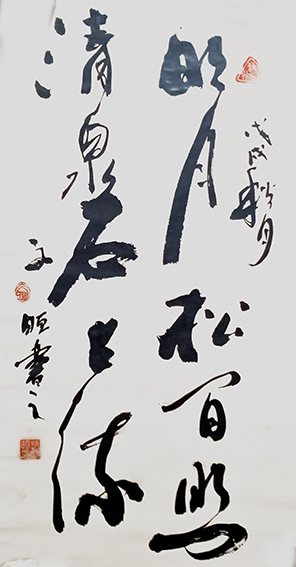 戊戌秋月
明月松間照
清泉石上流
書之